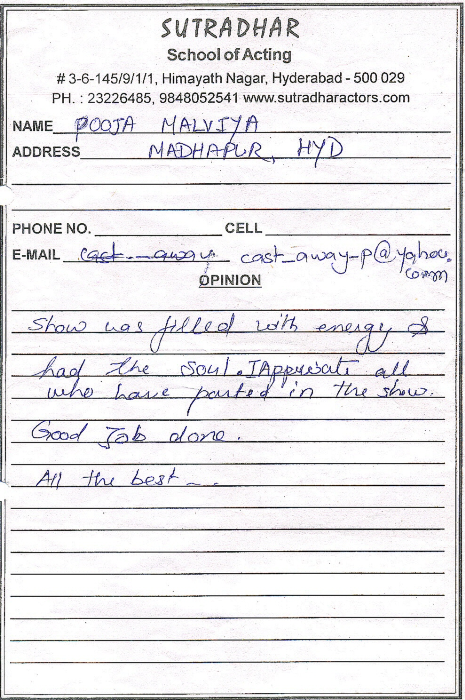 SUTRADHAR
School of Acting
# 3-6-145/9/1/1, Himayath Nagar, Hyderabad - 500 029
PH. : 23226485, 9848052541 www.sutradharactors.com
NAME POOJA MALVIYA
ADDRESS MADHAPUR, HYD
PHONE NO. CELL
E-MAIL cast_away cast_away_p@yahoo.
comm
OPINION
Show was filled with energy &
had the soul. I Appreciate all
who have parted in the show.
Good Job done.
All the best ...